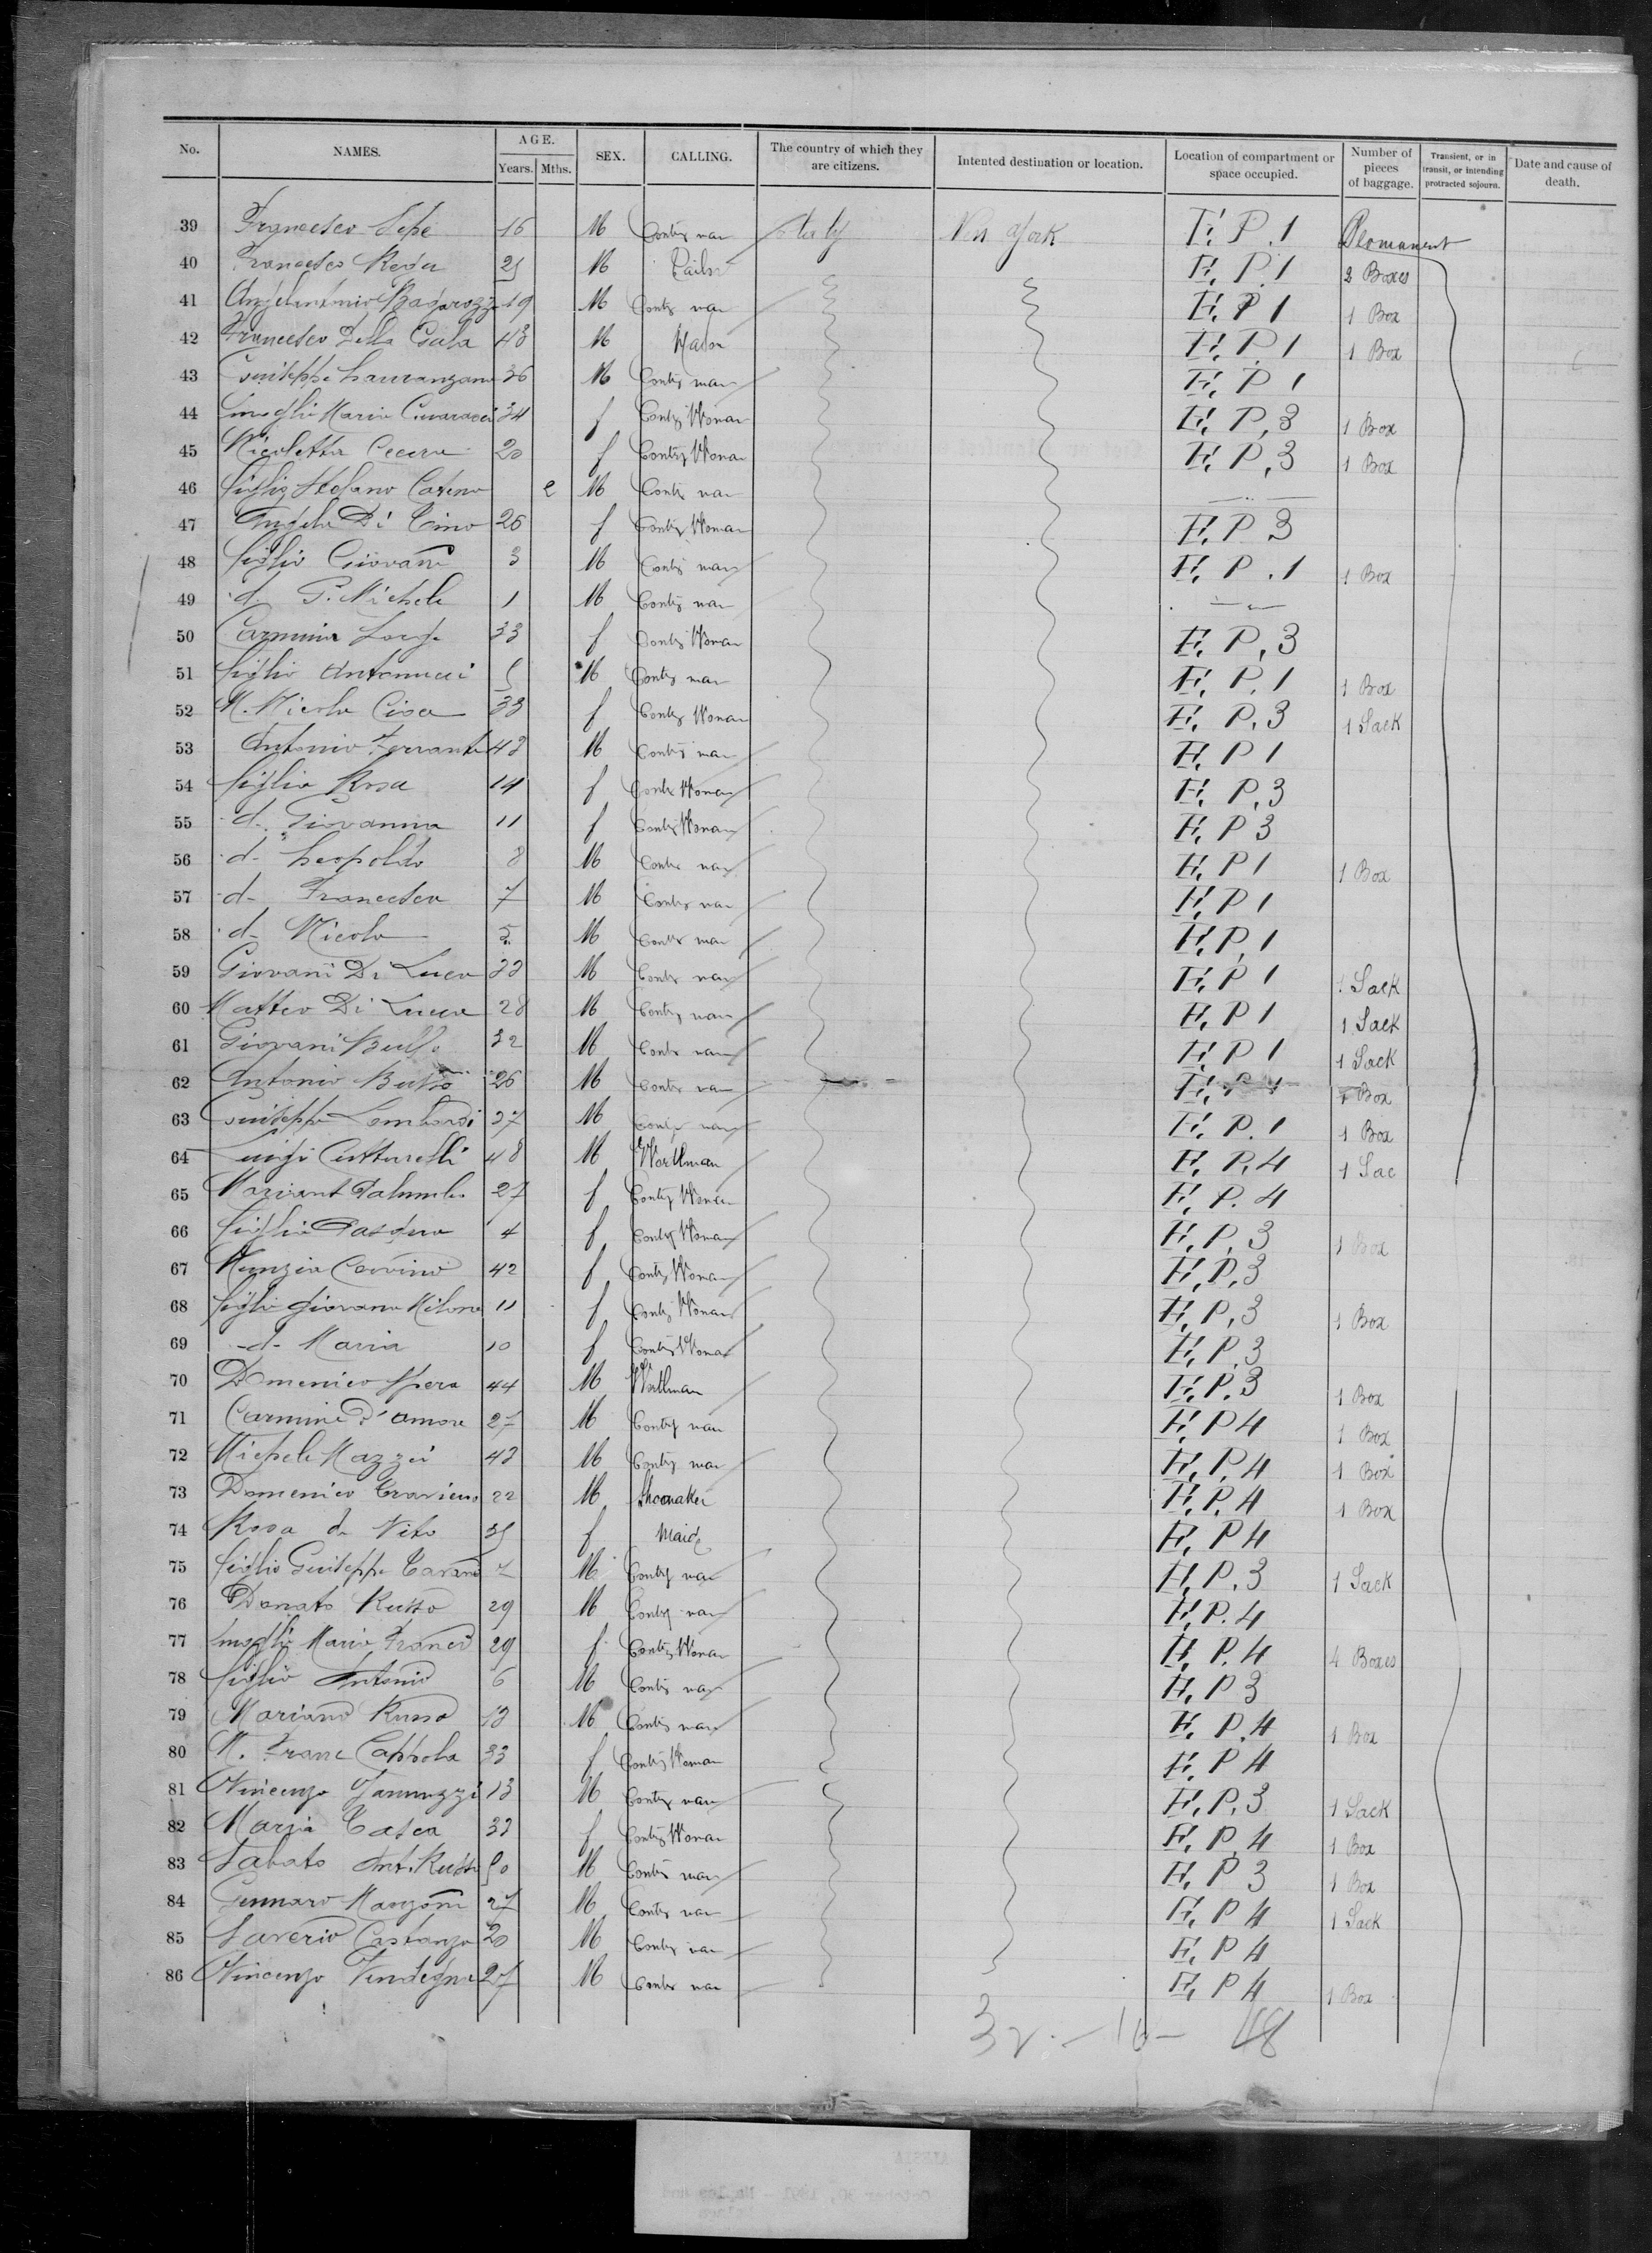 No. NAMES. AGE. Years. Mths. SEX. CALLING. The country of which they are citizens. Intented destination or location. Location of compartment or space occupied. Number of pieces of baggage. Transient, or in transit, or intending protracted sojourn. Date and cause of death.
39 Francesco Sepe 16 M Contry man Italy New York F. P. 1 Permanent
40 Francesco Rega M Tailor F. P. 1 2 Boxes
41 19 M Contry man F. P 1 1 Box
42 Francesco Della Gala 48 M Mason F. P. 1 1 Box
43 Guiseppe Lauranzano 36 M Contry man F. P 1
44 moglie Maria 34 f Contry Woman F. P, 3 1 Box
45 Nicoletta Cecere 20 f Contry Woman F. P, 3 1 Box
46 figlio Stefano M Contry man
47 Angela Di 26 f Contry Woman F. P 3
48 figlio Giovani 3 M Contry man F. P. 1 1 Box
49 d. G. Michele 1 M Contry man
50 Carmina 33 f Contry Woman F. P, 3
51 figlio Antonucci M Contry man F. P. 1 1 Box
52 M. Nicola 33 f Contry Woman F. P. 3 1 Sack
53 Antonio Ferrante 43 M Contry man F. P 1
54 figlia Rosa 14 f Contry Woman F. P, 3
55 d. Giovanna 11 f Contry Woman F. P 3
56 d- Leopoldo 8 M Contry man F. P 1 1 Box
57 d- Francesco 7 M Contry man F. P 1
58 d- Nicola 5 M Contry man F. P, 1
59 Giovani Di Luca 33 M Contry man F. P 1 1 Sack
60 Matteo Di Lucca 28 M Contry man F. P 1 1 Sack
61 Giovani 32 M Contry man F. P 1 1 Sack
62 Antonio Russo 26 M Contry man 1 Box
63 Guiseppe Lombardi 27 M Contry man F. P. 1 1 Box
64 Luigi 48 M Workman F. P. 4 1 Sac
65 Palumbo 27 f Contry Woman F. P. 4
66 figlia 4 f Contry Woman F. P, 3 1 Box
67 Nunzia 42 f Contry Woman F. P, 3
68 figlia Giovana Milone 11 f Contry Woman F. P, 3 1 Box
69 -d- Maria 10 f Contry Woman F. P, 3
70 Domenico Spera 44 M Workman F. P. 3 1 Box
71 Carmine D'amore 27 M Contry man F. P 4 1 Box
72 Michele Mazzei 43 M Contry man F. P. 4 1 Box
73 Domenico 22 M Shoemaker F. P. 4 1 Box
74 Rosa de Vito f Maid F. P 4
75 figlio Guiseppe M Contry man F. P. 3 1 Sack
76 Donato Russo 29 M Contry man F. P. 4
77 moglie Maria 29 f Contry Woman F. P. 4 4 Boxes
78 figlio Antonio 6 M Contry man F. P 3
79 Mariano Russo 13 M Contry man F. P. 4 1 Box
80 M. Franc Cappola 33 f Contry Woman F. P 4
81 Vincenzo 13 M Contry man F. P. 3 1 Sack
82 Maria 33 f Contry Woman F. P. 4 1 Box
83 Sabato Ant. Russo M Contry man F. P 3 1 Box
84 Gennaro 27 M Contry man F. P 4 1 Sack
85 Saverio Costanzo 20 M Contry man F. P 4
86 Vincenzo 27 M Contry man F. P 4 1 Box
32 - 16 - 48